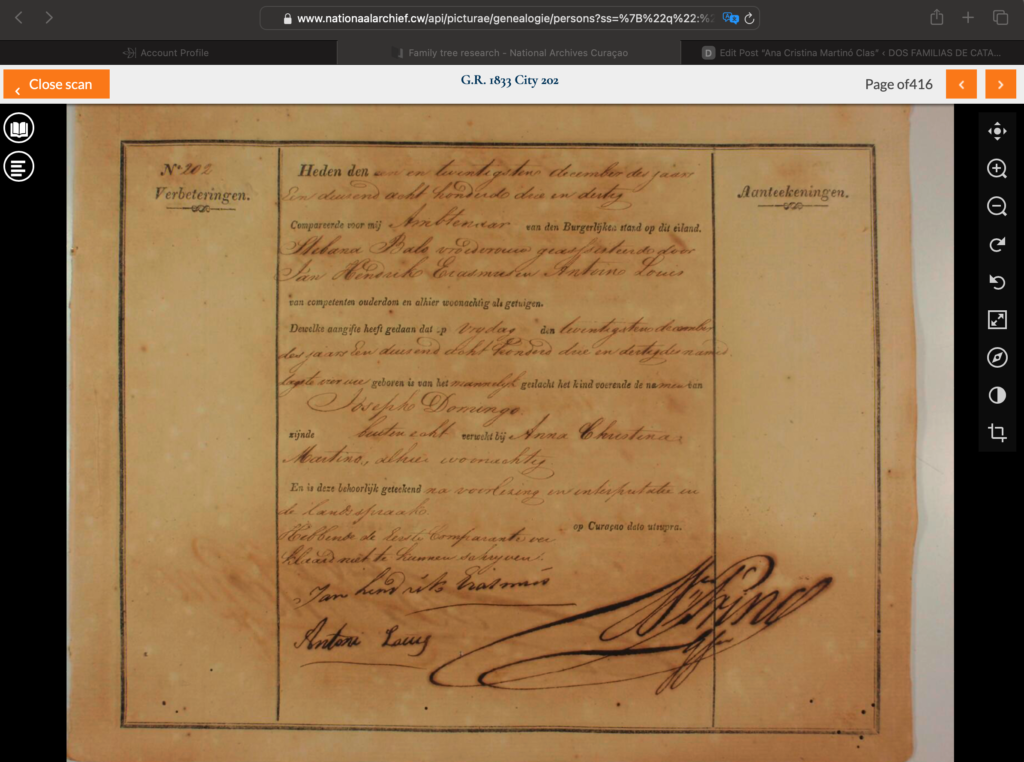 www.nationaalarchief.cw/api/picturae/genealogie/persons?ss=%7B%22q%22:%2
Account Profile
Family tree research - National Archives Curaçao
Edit Post “Ana Cristina Martinó Clas” ‹ DOS FAMILIAS DE CATA...
Close scan
G.R. 1833 City 202
Page of416
No 202
Verbeteringen.
Aanteekeningen.
Heden den een en twintigsten december des jaars
Een duizend acht honderd drie en dertig
Compareerde voor mij Ambtenaar van den Burgerlijken stand op dit eiland.
Bale vroedvrouw geassisteerde door
Jan Hendrik Erasmus en Antoine Louis
van competenten ouderdom en alhier woonachtig als getuigen.
Dewelke aangifte heeft gedaan dat op vrydag den twintigsten december
des jaars Een duizend acht honderd drie en dertig des namid
geboren is van het mannelijk geslacht het kind voerende de namen van
Josepho Domingo
zijnde buiten echt verwekt bij Anna Christina
Martino, alhier woonachtig
En is deze behoorlijk geteekend na voorlezing en interpretatie in
de landspraak
op Curaçao dato utsupra.
Hebbende de Eerste Comparante ver
klaard niet te kunnen schryven.
Jan hendrik Erasmus
Antoni Louis